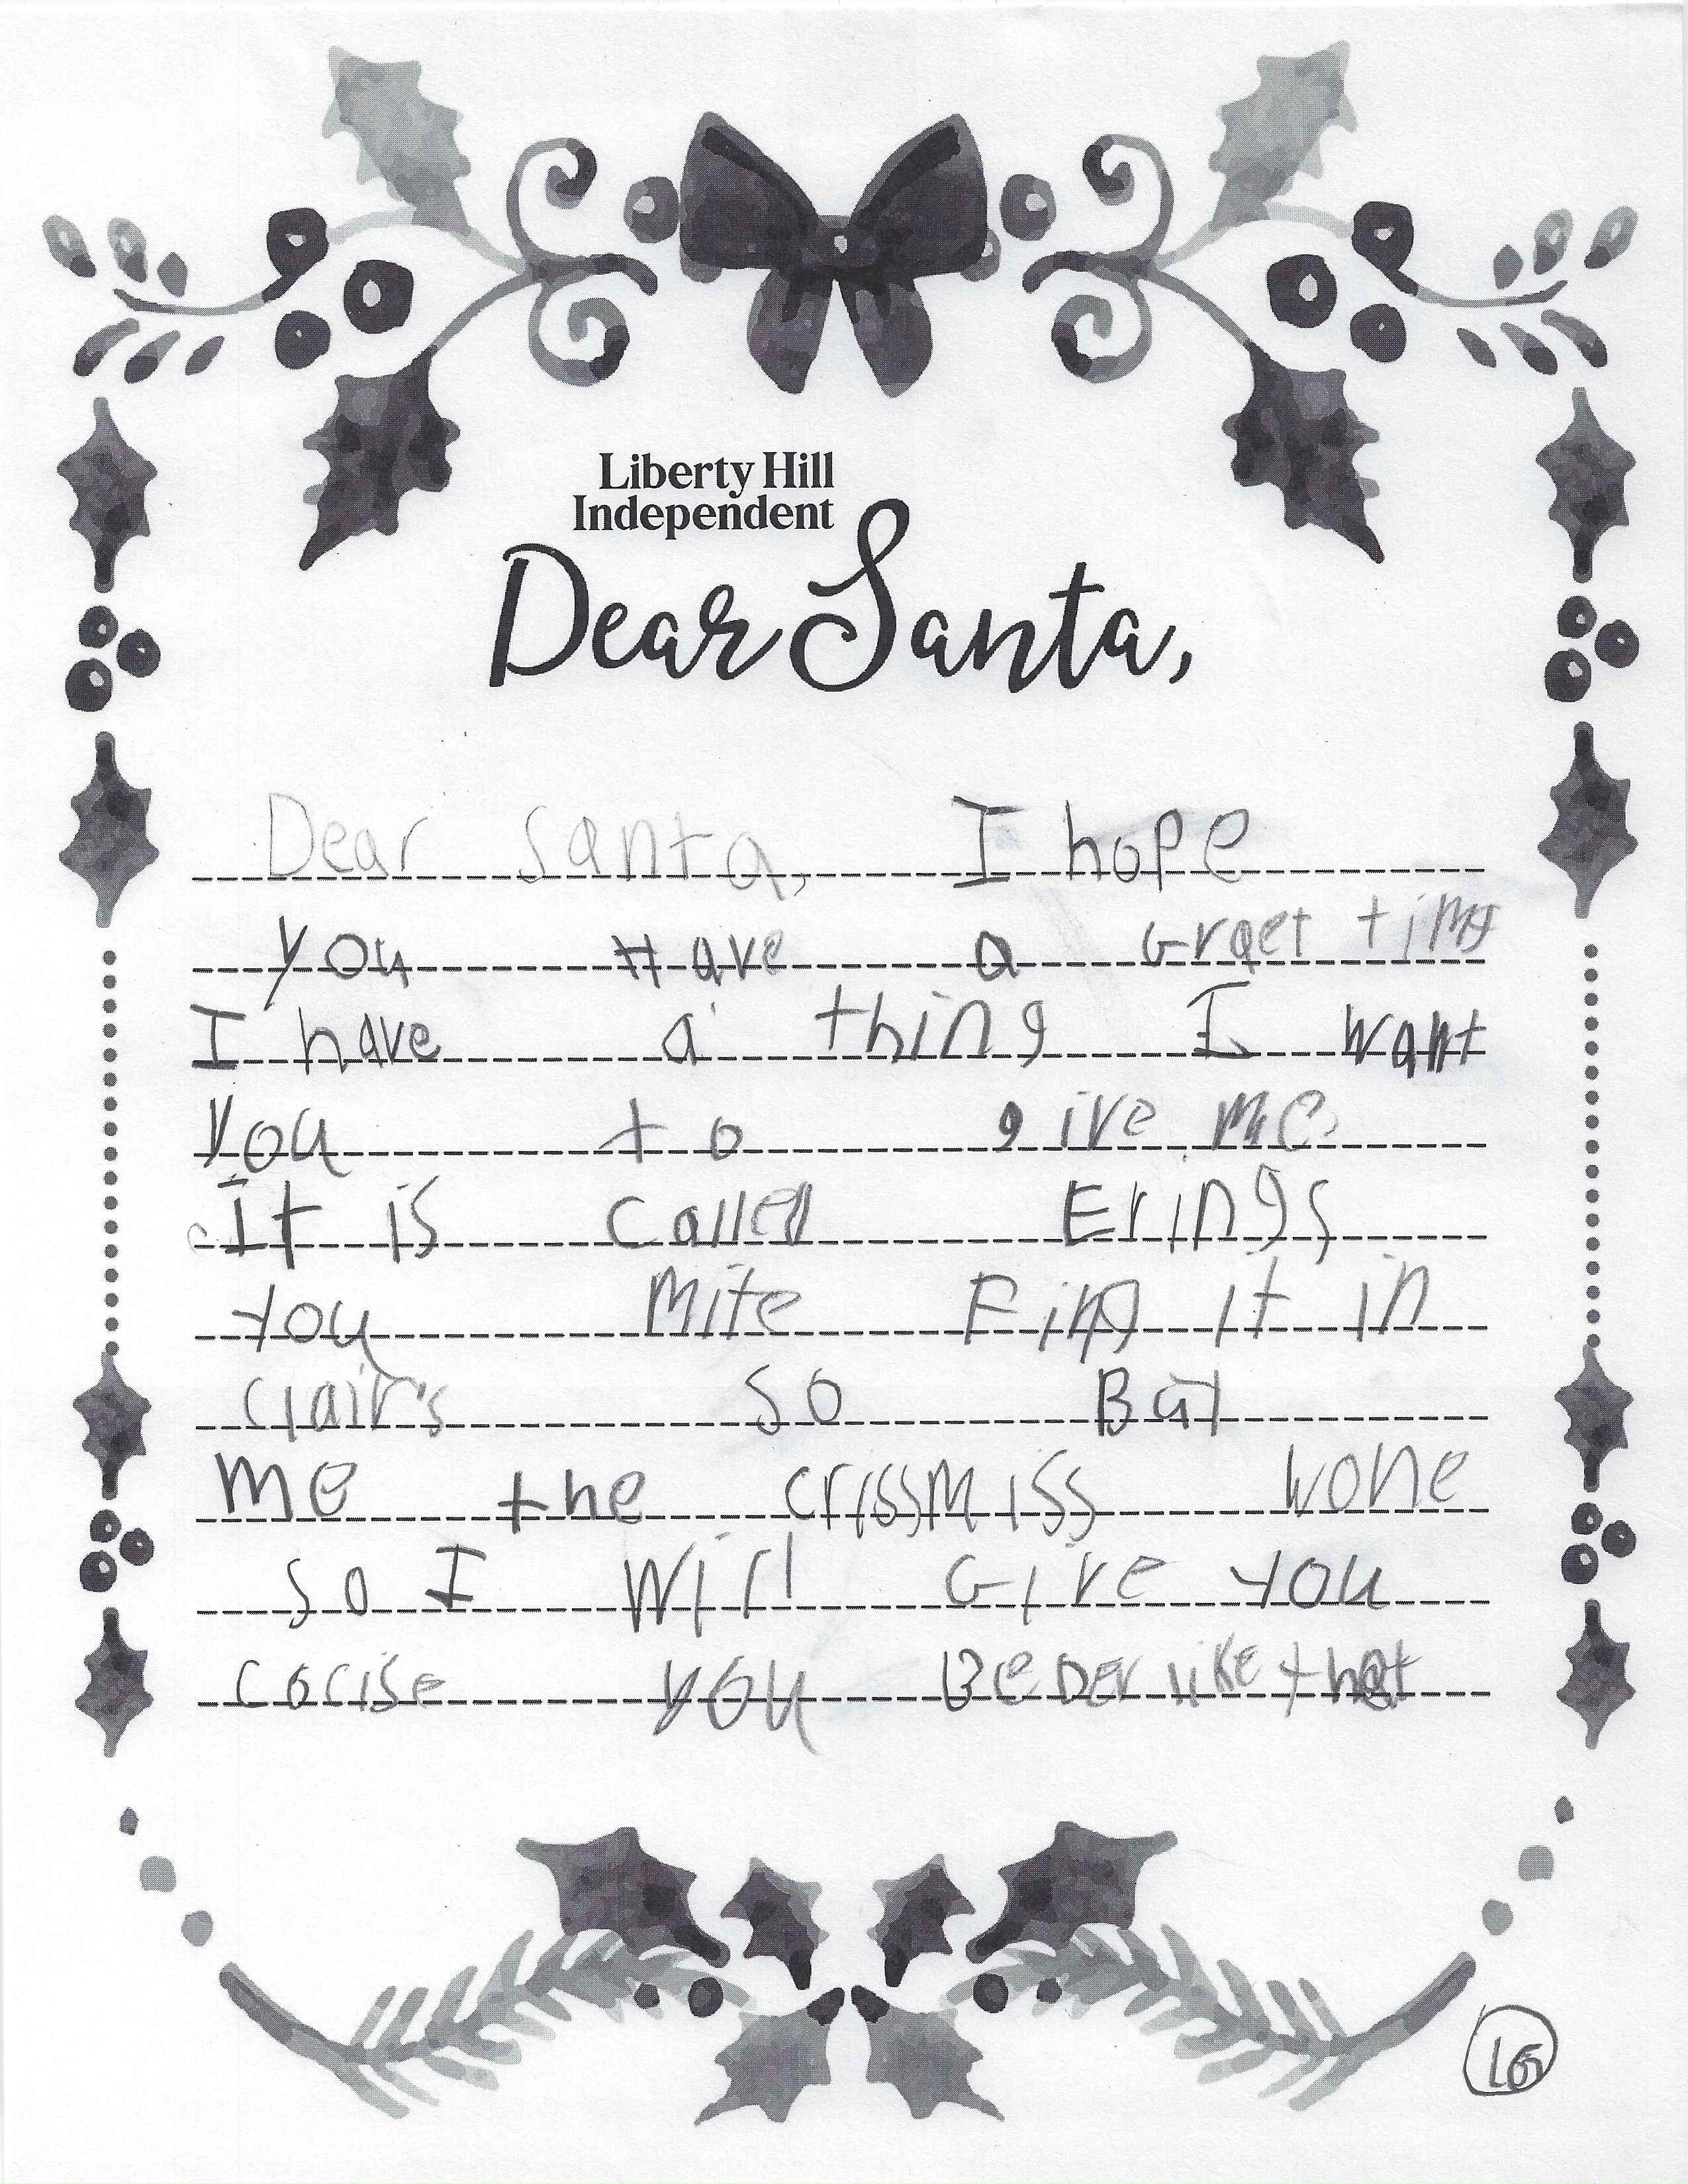 Liberty Hill
Independent
Dear Santa,
Dear Santa, I hope
you Have a Graet time
I have a thing I want
you to give me.
It is Called Erings
You Mite Find it in
Clair's so Bat
me the crissmiss wone
so I Will Give you
cocise you Beder like that